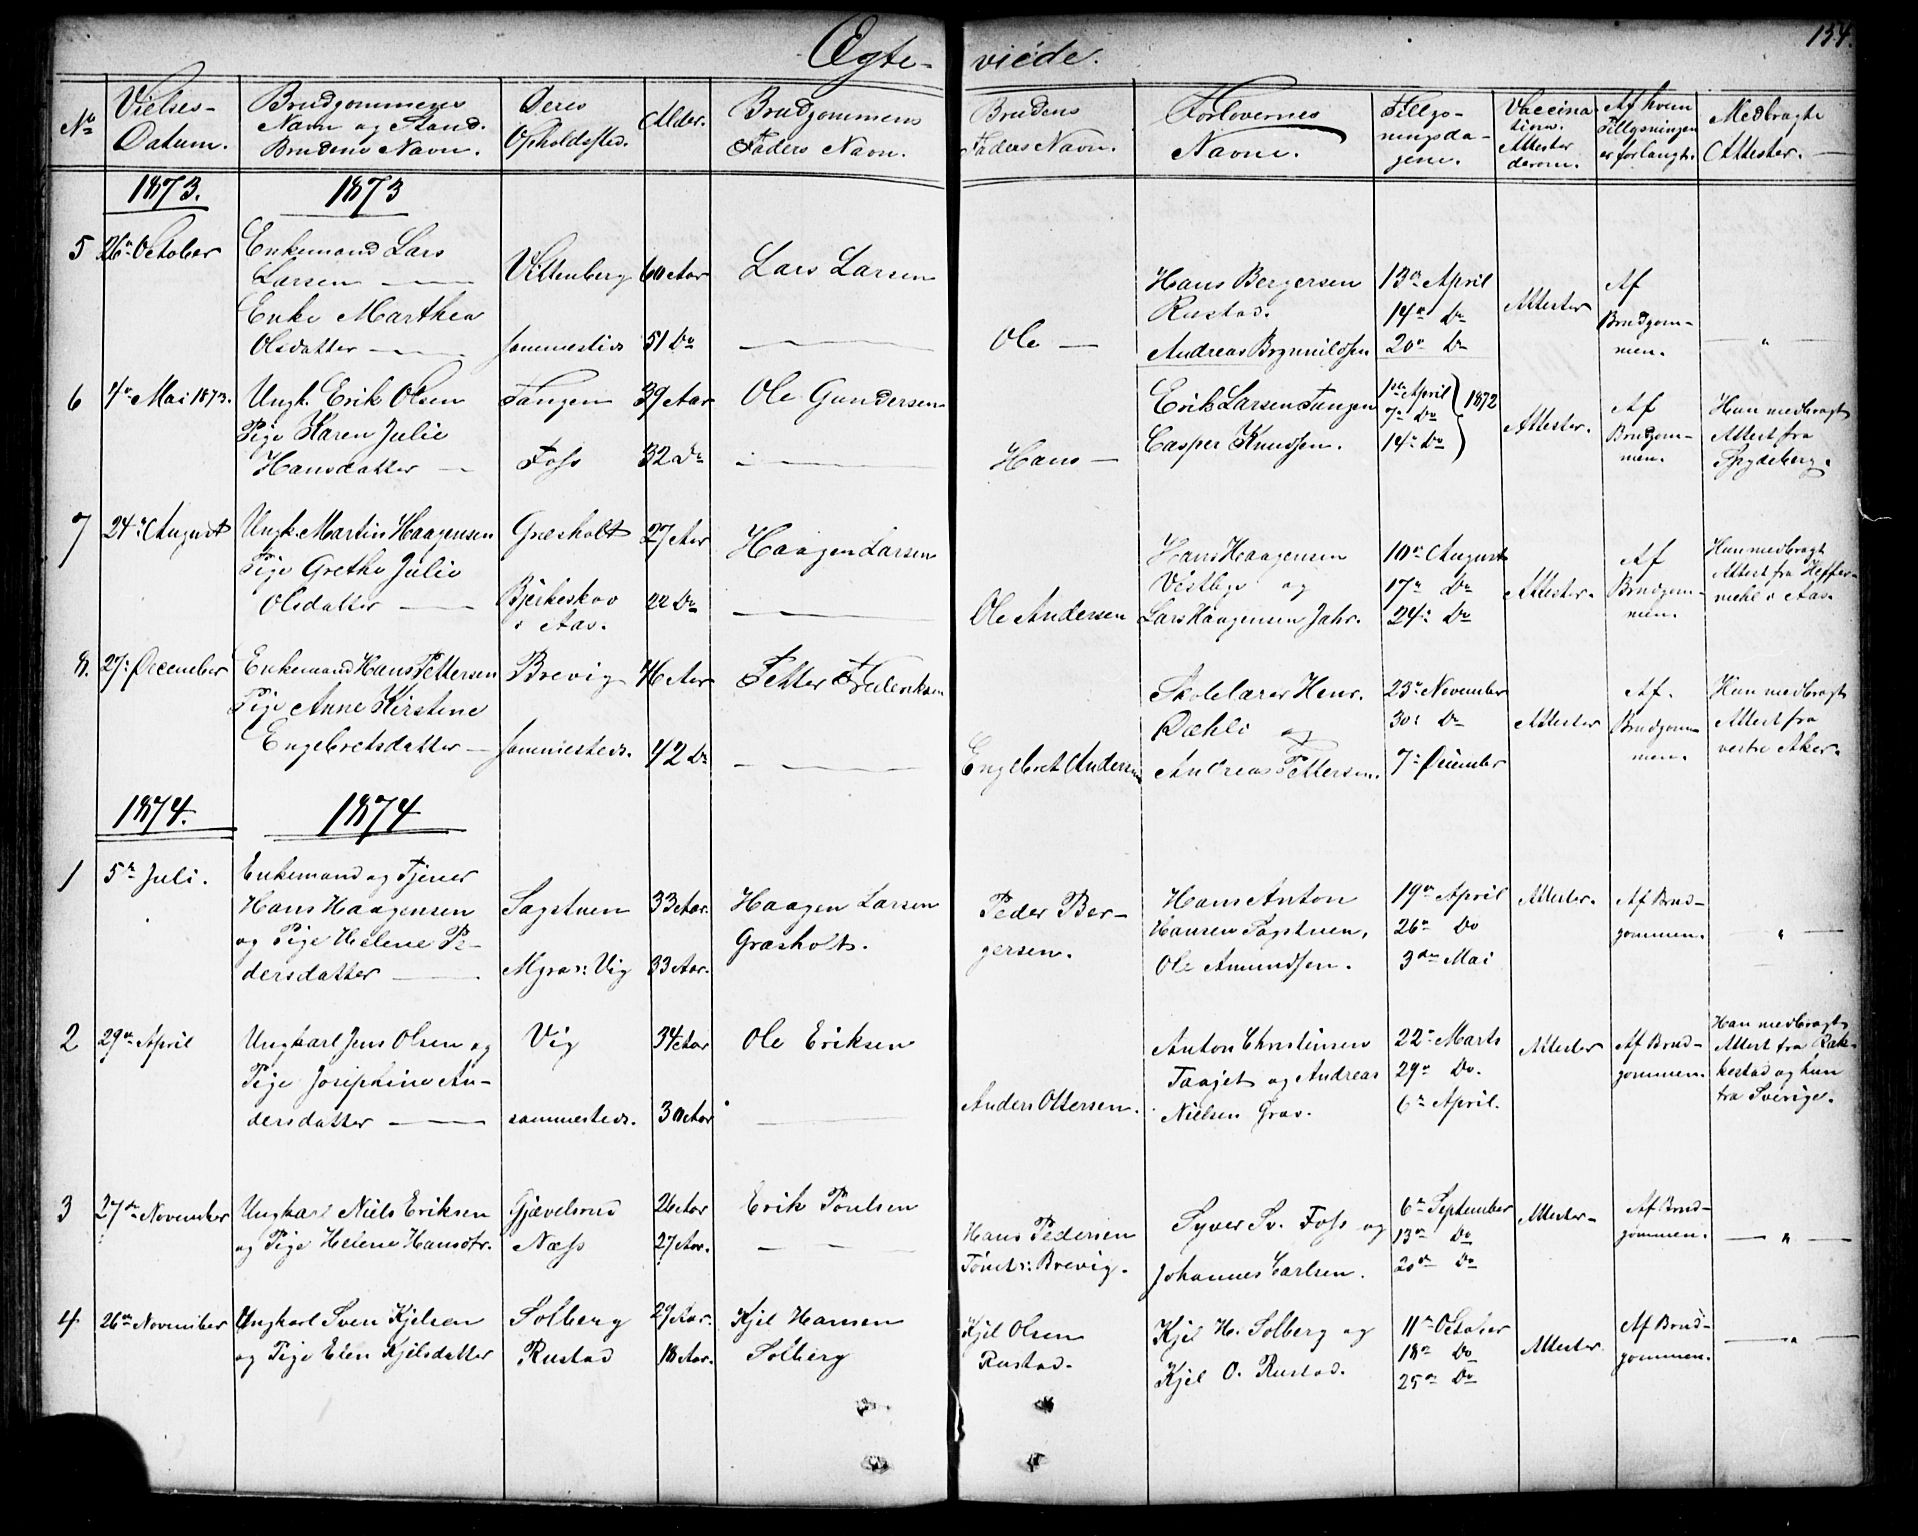 134.
Ægte- viede.
No
Vielses-
Datum.
Brudgommens
Navn og Stand.
Brudens Navn.
Deres
Opholdssted.
Alder.
Brudgommens
Faders Navn.
Brudens
Faders Navn.
Forlovernes
Navne.
Tillys-
ningsda-
gene.
Vaccina
tions
Attester
derom.
Af hvem
Tillysningen
er forlangt.
Medbragte
Attester.
1873. 1873
5 26de October
Enkemand Lars
Larsen
Enke Marthea
Olsdatter
Vittenberg
sammesteds
60 Aar
51 Do
Lars Larsen
Ole
Hans Bergersen
Rustad.
Andreas Brynnildsen
13de April
14de Do
20de Do
Attester
Af
Brudgom-
men.
"
6 4de Mai 1873.
Ungk. Erik Olsen
Pige Karen Julie
Hansdatter
Tangen
Foss
39 Aar
32 Do
Ole Gundersen
Hans
Erik Larsen Tangen
Casper Knudsen.
1ste April
7de Do
14de Do
1872
Attester.
Af
Brudgom-
men.
Han medbragt
Attest fra
Spydeberg.
7 24de August
Ungk. Martin Haagensen
Pige Grethe Julie
Olsdatter
Græsholt
Bjerkeskov
i Aas.
27 Aar
22 Do
Haagen Larsen
Ole Andersen
Hans Haagensen
Vestby og
Lars Haagensen Jahr.
10de August
17de Do
24de Do
Attester.
Af
Brudgom-
men.
Hun medbragt
Attest fra
i Aas.
8. 27de December
Enkemand Hans Pettersen
Pige Anne Kirstine
Engebretsdatter
Brevig
sammesteds.
46 Aar
42 Do
Petter Frederiksen
Engebret Andersen
Skolelærer Henr.
Dæhli og
Andreas Pettersen.
23de November
30de Do
7de December
Attester
Af
Brudgom-
men.
Hun medbragt
Attest fra
vestre Aker.
1874. 1874
1 5te Juli.
Enkemand og Tjener
Hans Haagensen
og Pige Helene Pe-
dersdatter
Sagstuen
Vig
33 Aar.
33 Aar.
Haagen Larsen
Græsholt.
Peder Ber-
gersen.
Hans Anton
Hansen Sagstuen,
Ole Amundsen.
19de April
26de Do
3die Mai
Attester.
Af Brud-
gommen.
"
2 29de April
Ungkarl Jens Olsen og
Pige Josephine An-
dersdatter
Vig
sammesteds.
34 Aar
30 Aar
Ole Eriksen
Anders Ottersen.
Anton Christensen
Taajet og Andreas
Nielsen Grav.
22de Marts
29de Do.
6te April.
Attester
Af Brud-
gommen.
Han medbragt
Attest fra Rak-
kestad og hun
fra Sverige.
3 27de November
Ungkarl Niels Eriksen
og Pige Helene Hansdtr.
Gjævelsrud
Næss
26 Aar
27 Aar.
Erik Poulsen
Hans Pedersen
Brevig.
Syver Sv. Foss og
Johannes Carlsen.
6te September
13de Do
20de Do
Attester
Af Brud-
gommen.
"
4 26de November
Ungkarl Sven Kjelsen
og Pige Elen Kjelsdatter
Solberg
Rustad
29 Aar.
18 Aar.
Kjel Hansen
Solberg
Kjel Olsen
Rustad.
Kjel H. Solberg og
Kjel O. Rustad.
11te October
18de Do
25de Do
Attester
Af Brud-
gommen.
"